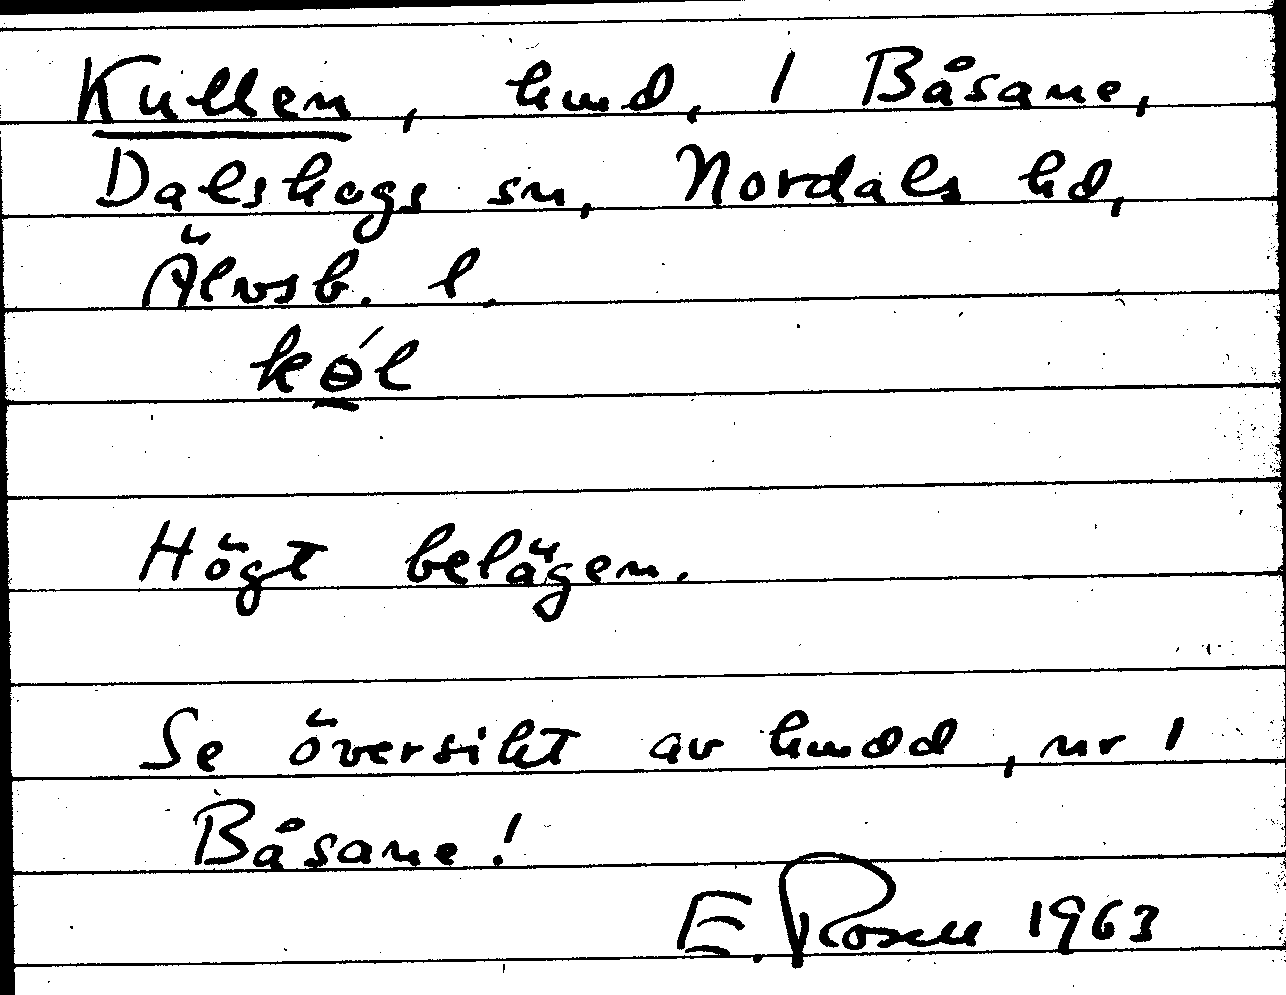 Kullen, hmd, 1 Båsane,
Dalskogs sn, Nordals hd,
Älvsb. l.
kɵ́l
Högt belägen.
Se översikt av hmdd, nr 1
Båsane!
E. Rosell 1963